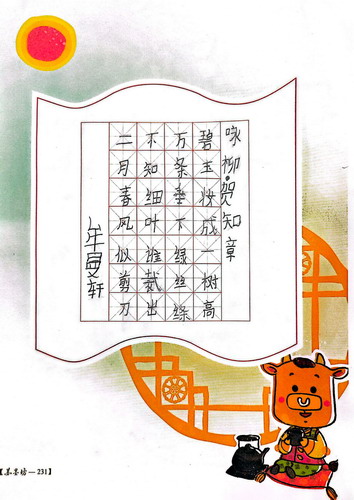 咏柳·贺知章
碧玉妆成一树高
万条垂下绿丝绦
不知细叶谁裁出
二月春风似剪刀
曼轩
坊—231】